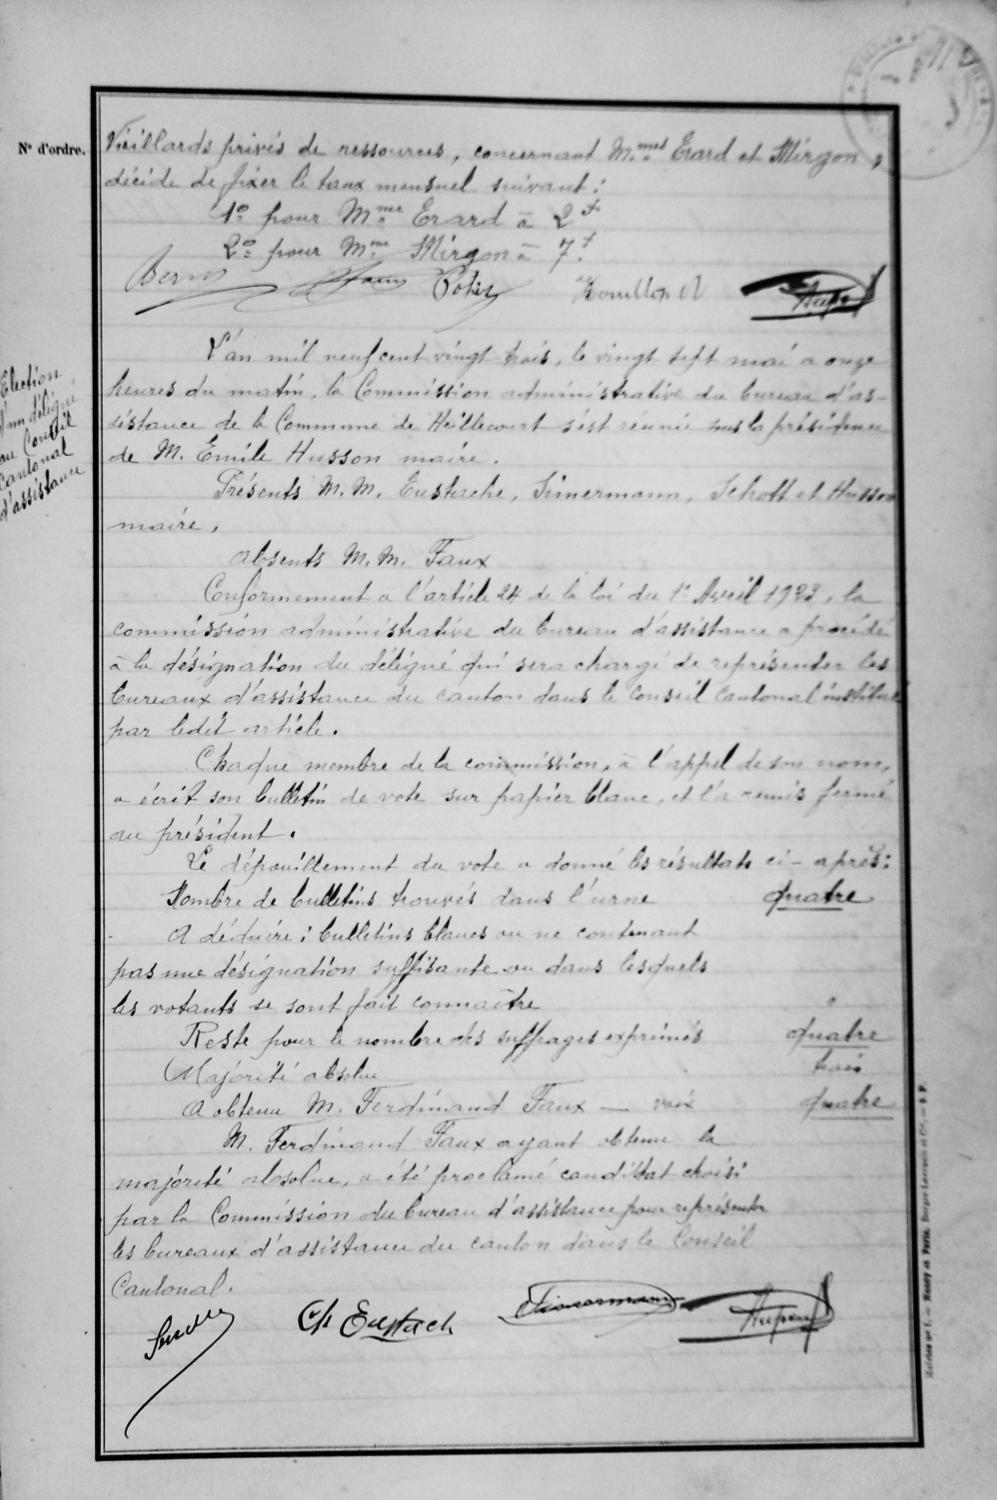 N° d'ordre.
Vieillards privés de ressources, concernant M.mes Erard et Mirgon,
décide de fixer le taux mensuel suivant :
1° pour Mme Erard à 2 f
2° pour Mme Mirgon à 7 f.
Election
d'un délégué
au Conseil
cantonal
d'assistance
L'an mil neuf cent vingt trois, le vingt sept mai a onze
heures du matin, la Commission administrative du bureau d'as-
sistance de la Commune de Heillecourt s'est réunie sous la présidence
de M. Emile Husson maire.
Présents M.M. Eustache, Simermann, Schott et Husson
maire,
absents M.M. Faux
Conformement a l'article 24 de la loi du 1er Avril 1923, la
commission administrative du bureau d'assistance a procédé
à la désignation du délégué qui sera chargé de représenter les
bureaux d'assistance du canton dans le conseil cantonal institué
par ledit article.
Chaque membre de la commission, à l'appel de son nom,
a écrit son bulletin de vote sur papier blanc, et l'a remis fermé
au président.
Le dépouillement du vote a donné les résultats ci-après :
Nombre de bulletins trouvés dans l'urne quatre
A déduire : bulletins blancs ou ne contenant
pas une désignation suffisante ou dans lesquels
les votants se sont fait connaître
Reste pour le nombre des suffrages exprimés quatre
Majorité absolue trois
A obtenu M. Ferdinand Faux — voix quatre
M. Ferdinand Faux ayant obtenu la
majorité absolue, a été proclamé candidat choisi
par la Commission du bureau d'assistance pour représenter
les bureaux d'assistance du canton dans le Conseil
Cantonal.
Ch Eustach